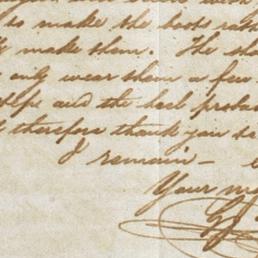 make the boots rather
make them. The sh
only wear them a few
and the heel proba
therefore thank you
I remain –
Your mo